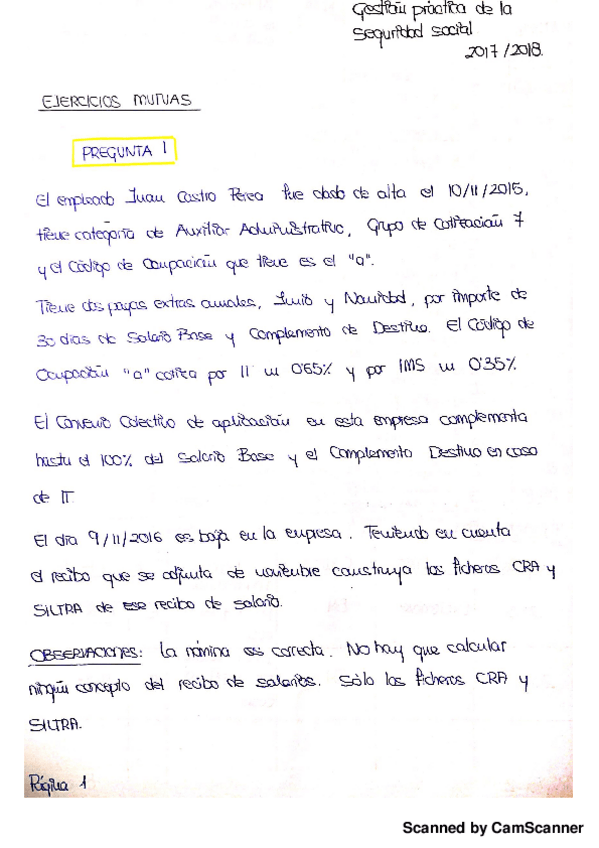 Gestión práctica de la
Seguridad social
2017/2018.
EJERCICIOS MUTUAS
PREGUNTA 1
El empleado Juan Castro Perea fue dado de alta el 10/11/2015,
tiene categoría de Auxiliar Administrativo, Grupo de Cotización 7
y el Código de Ocupación que tiene es el "a".
Tiene dos pagas extras anuales, Junio y Navidad, por importe de
30 días de Salario Base y Complemento de Destino. El Código de
Ocupación "a" cotiza por IT un 0'65% y por IMS un 0'35%
El Convenio Colectivo de aplicación en esta empresa complementa
hasta el 100% del Salario Base y el Complemento Destino en caso
de IT
El día 9/11/2016 es baja en la empresa. Teniendo en cuenta
el recibo que se adjunta de noviembre construya los ficheros CRA y
SILTRA de ese recibo de salario.
OBSERVACIONES: La nómina es correcta. No hay que calcular
ningún concepto del recibo de salarios. Sólo los ficheros CRA y
SILTRA.
Página 1
Scanned by CamScanner